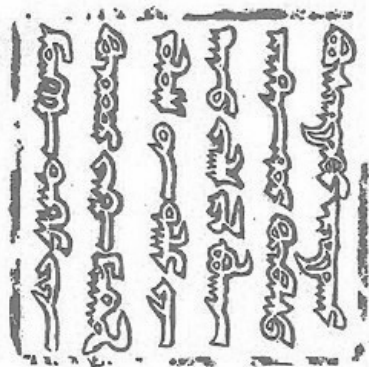 ᠮᠥᠩᠬᠡ ᠲᠩᠷᠢ ᠶᠢᠨ
ᠬᠦᠴᠦᠨᠳᠦᠷ ᠶᠡᠬᠡ ᠮᠣᠩᠭᠣᠯ
ᠤᠯᠤᠰ ᠤᠨ ᠳᠠᠯᠠᠢ ᠶᠢᠨ
ᠬᠠᠨᠤ ᠵᠷᠯᠭ ᠢᠯ ᠪᠤᠯᠭᠠ
ᠢᠷᠭᠡᠨ ᠳᠦᠷ ᠬᠦᠷᠪᠡᠰᠦ
ᠪᠦᠰᠢᠷᠡᠲᠦᠭᠦᠢ ᠠᠶᠤᠲᠤᠭᠠᠢ